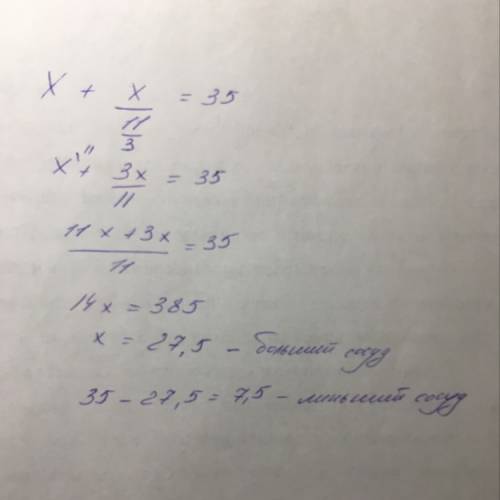 x + x/(11/3) = 35
x^11 + 3x/11 = 35
(11x + 3x)/11 = 35
14x = 385
x = 27,5 – больший сосуд
35 – 27,5 = 7,5 – меньший сосуд